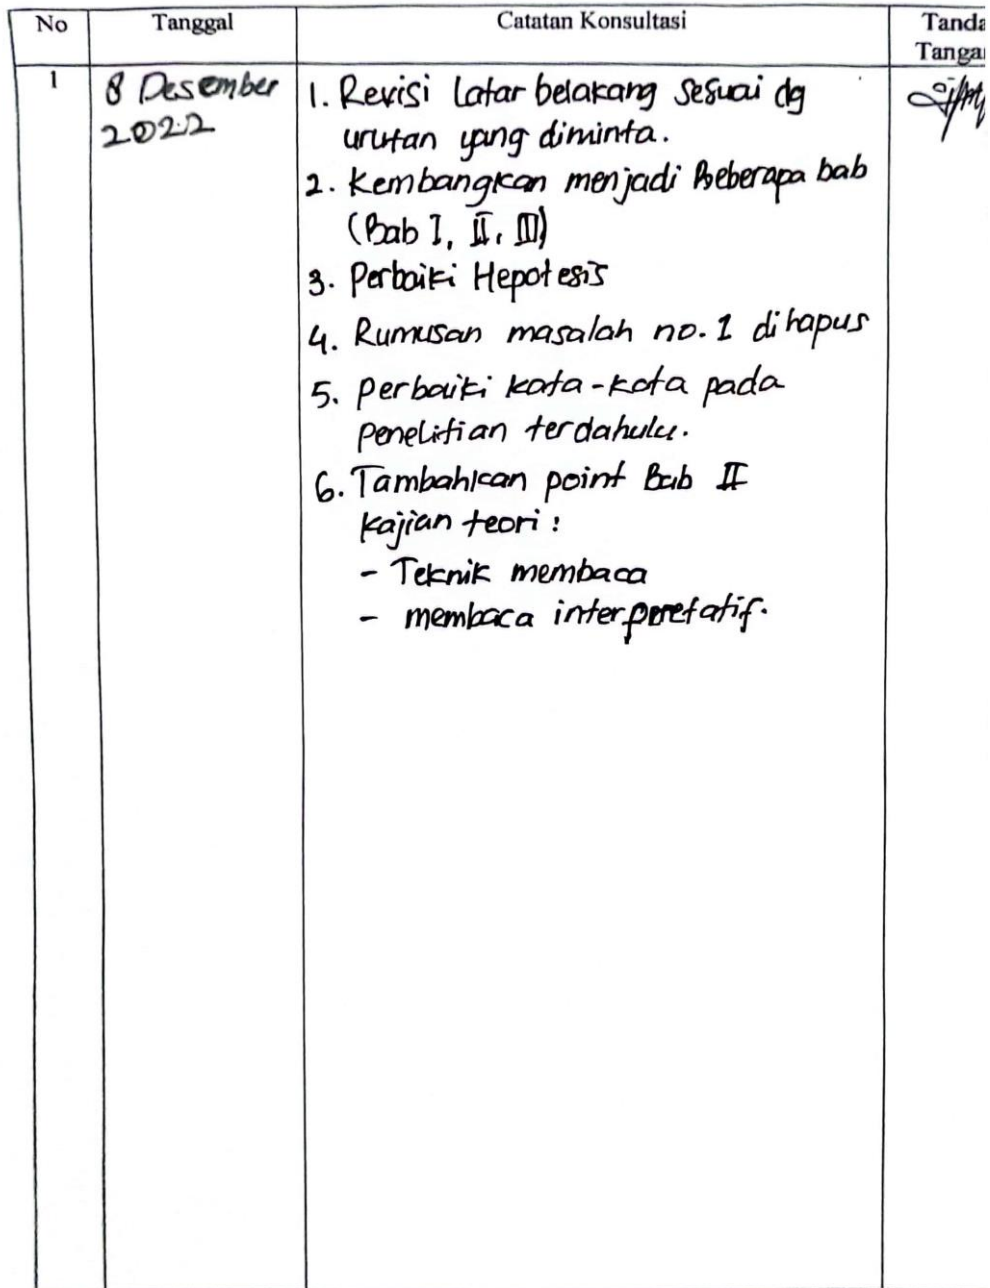 No Tanggal Catatan Konsultasi Tanda
Tangan
1 8 Desember 1. Revisi Latar belakang sesuai dg
2022 urutan yang diminta.
2. Kembangkan menjadi Beberapa bab
(Bab I, II, III)
3. Perbaiki Hepotesis
4. Rumusan masalah no. 1 dihapus
5. perbaiki kata-kata pada
penelitian terdahulu.
6. Tambahkan point Bab II
kajian teori :
- Teknik membaca
- membaca interpretatif.